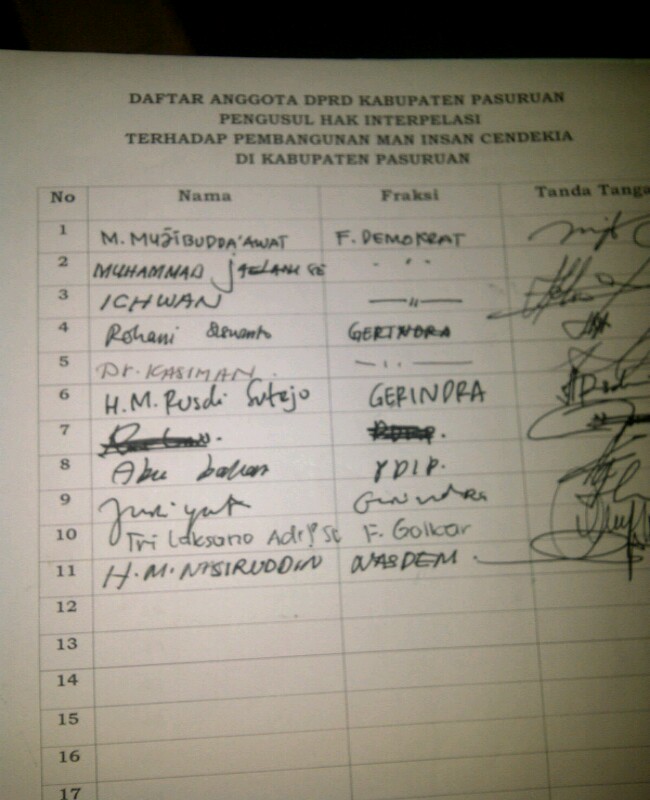 DAFTAR ANGGOTA DPRD KABUPATEN PASURUAN
PENGUSUL HAK INTERPELASI
TERHADAP PEMBANGUNAN MAN INSAN CENDEKIA
DI KABUPATEN PASURUAN
No Nama Fraksi Tanda Tanga
1 M. MUJIBUDDA'AWAT F. DEMOKRAT
2 MUHAMMAD JAELANI SE
3 ICHWAN — " —
4 Rohani Siswanto GERINDRA
5 Dr. KASIMAN
6 H.M. Rusdi Sutejo GERINDRA
7
8 Abu bakar PDIP.
9 Gerindra
10 Tri Laksono Adi F. Golkar
11 H.M. NASIRUDDIN NASDEM
12
13
14
15
16
17